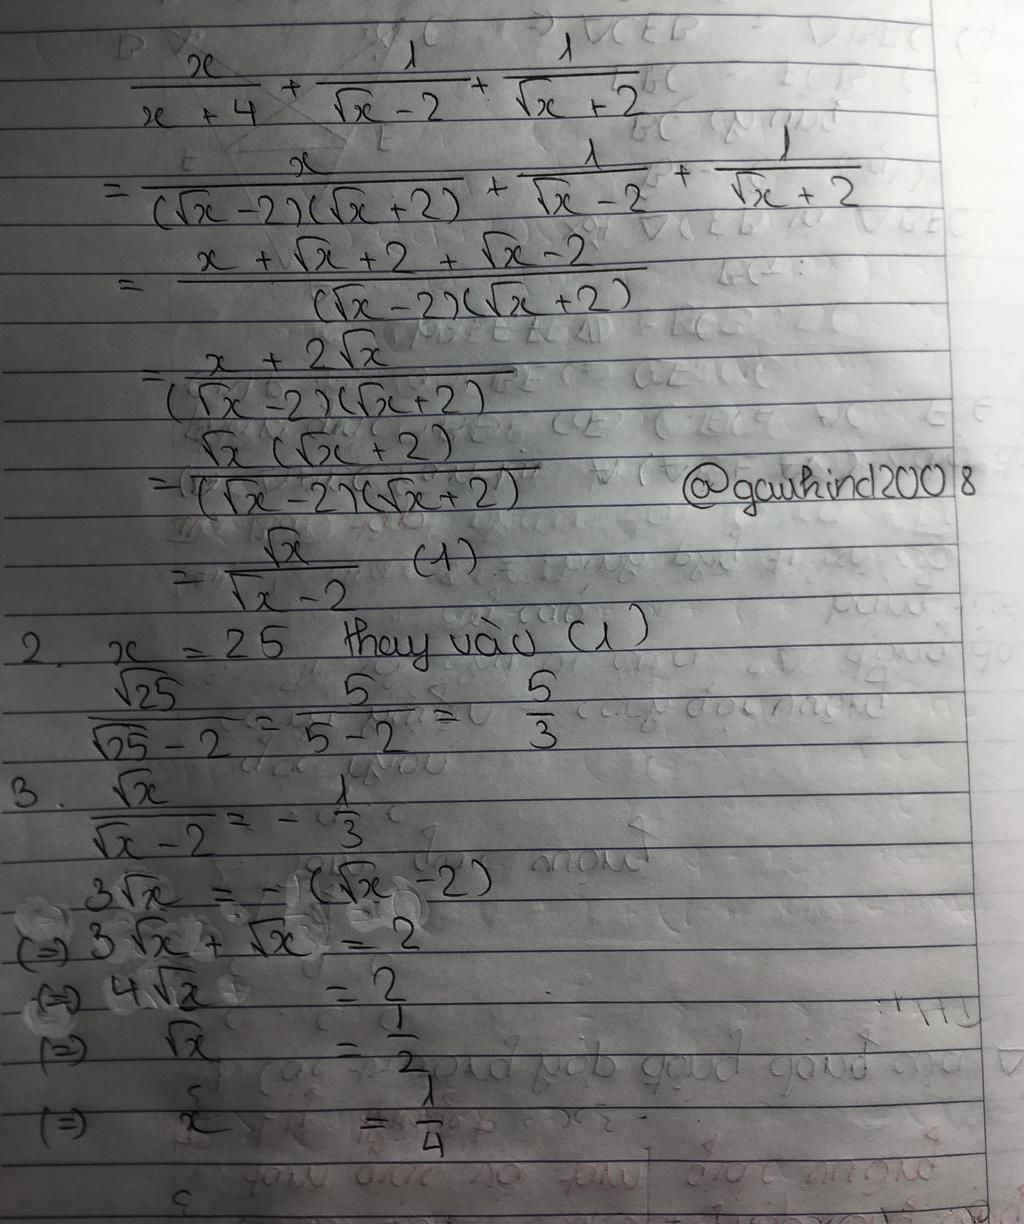 x/(x + 4) + 1/(√x - 2) + 1/(√x + 2)
= x/((√x - 2)(√x + 2)) + 1/(√x - 2) + 1/(√x + 2)
= (x + √x + 2 + √x - 2)/((√x - 2)(√x + 2))
= (x + 2√x)/((√x - 2)(√x + 2))
= (√x (√x + 2))/((√x - 2)(√x + 2))
@gauhind2008
= √x/(√x - 2) (1)
2. x = 25 thay vào (1)
√25/(√25 - 2) = 5/(5 - 2) = 5/3
3. √x/(√x - 2) = - 1/3
3√x = - (√x - 2)
(=) 3√x + √x = 2
(=) 4√x = 2
(=) √x = 1/2
(=) x = 1/4